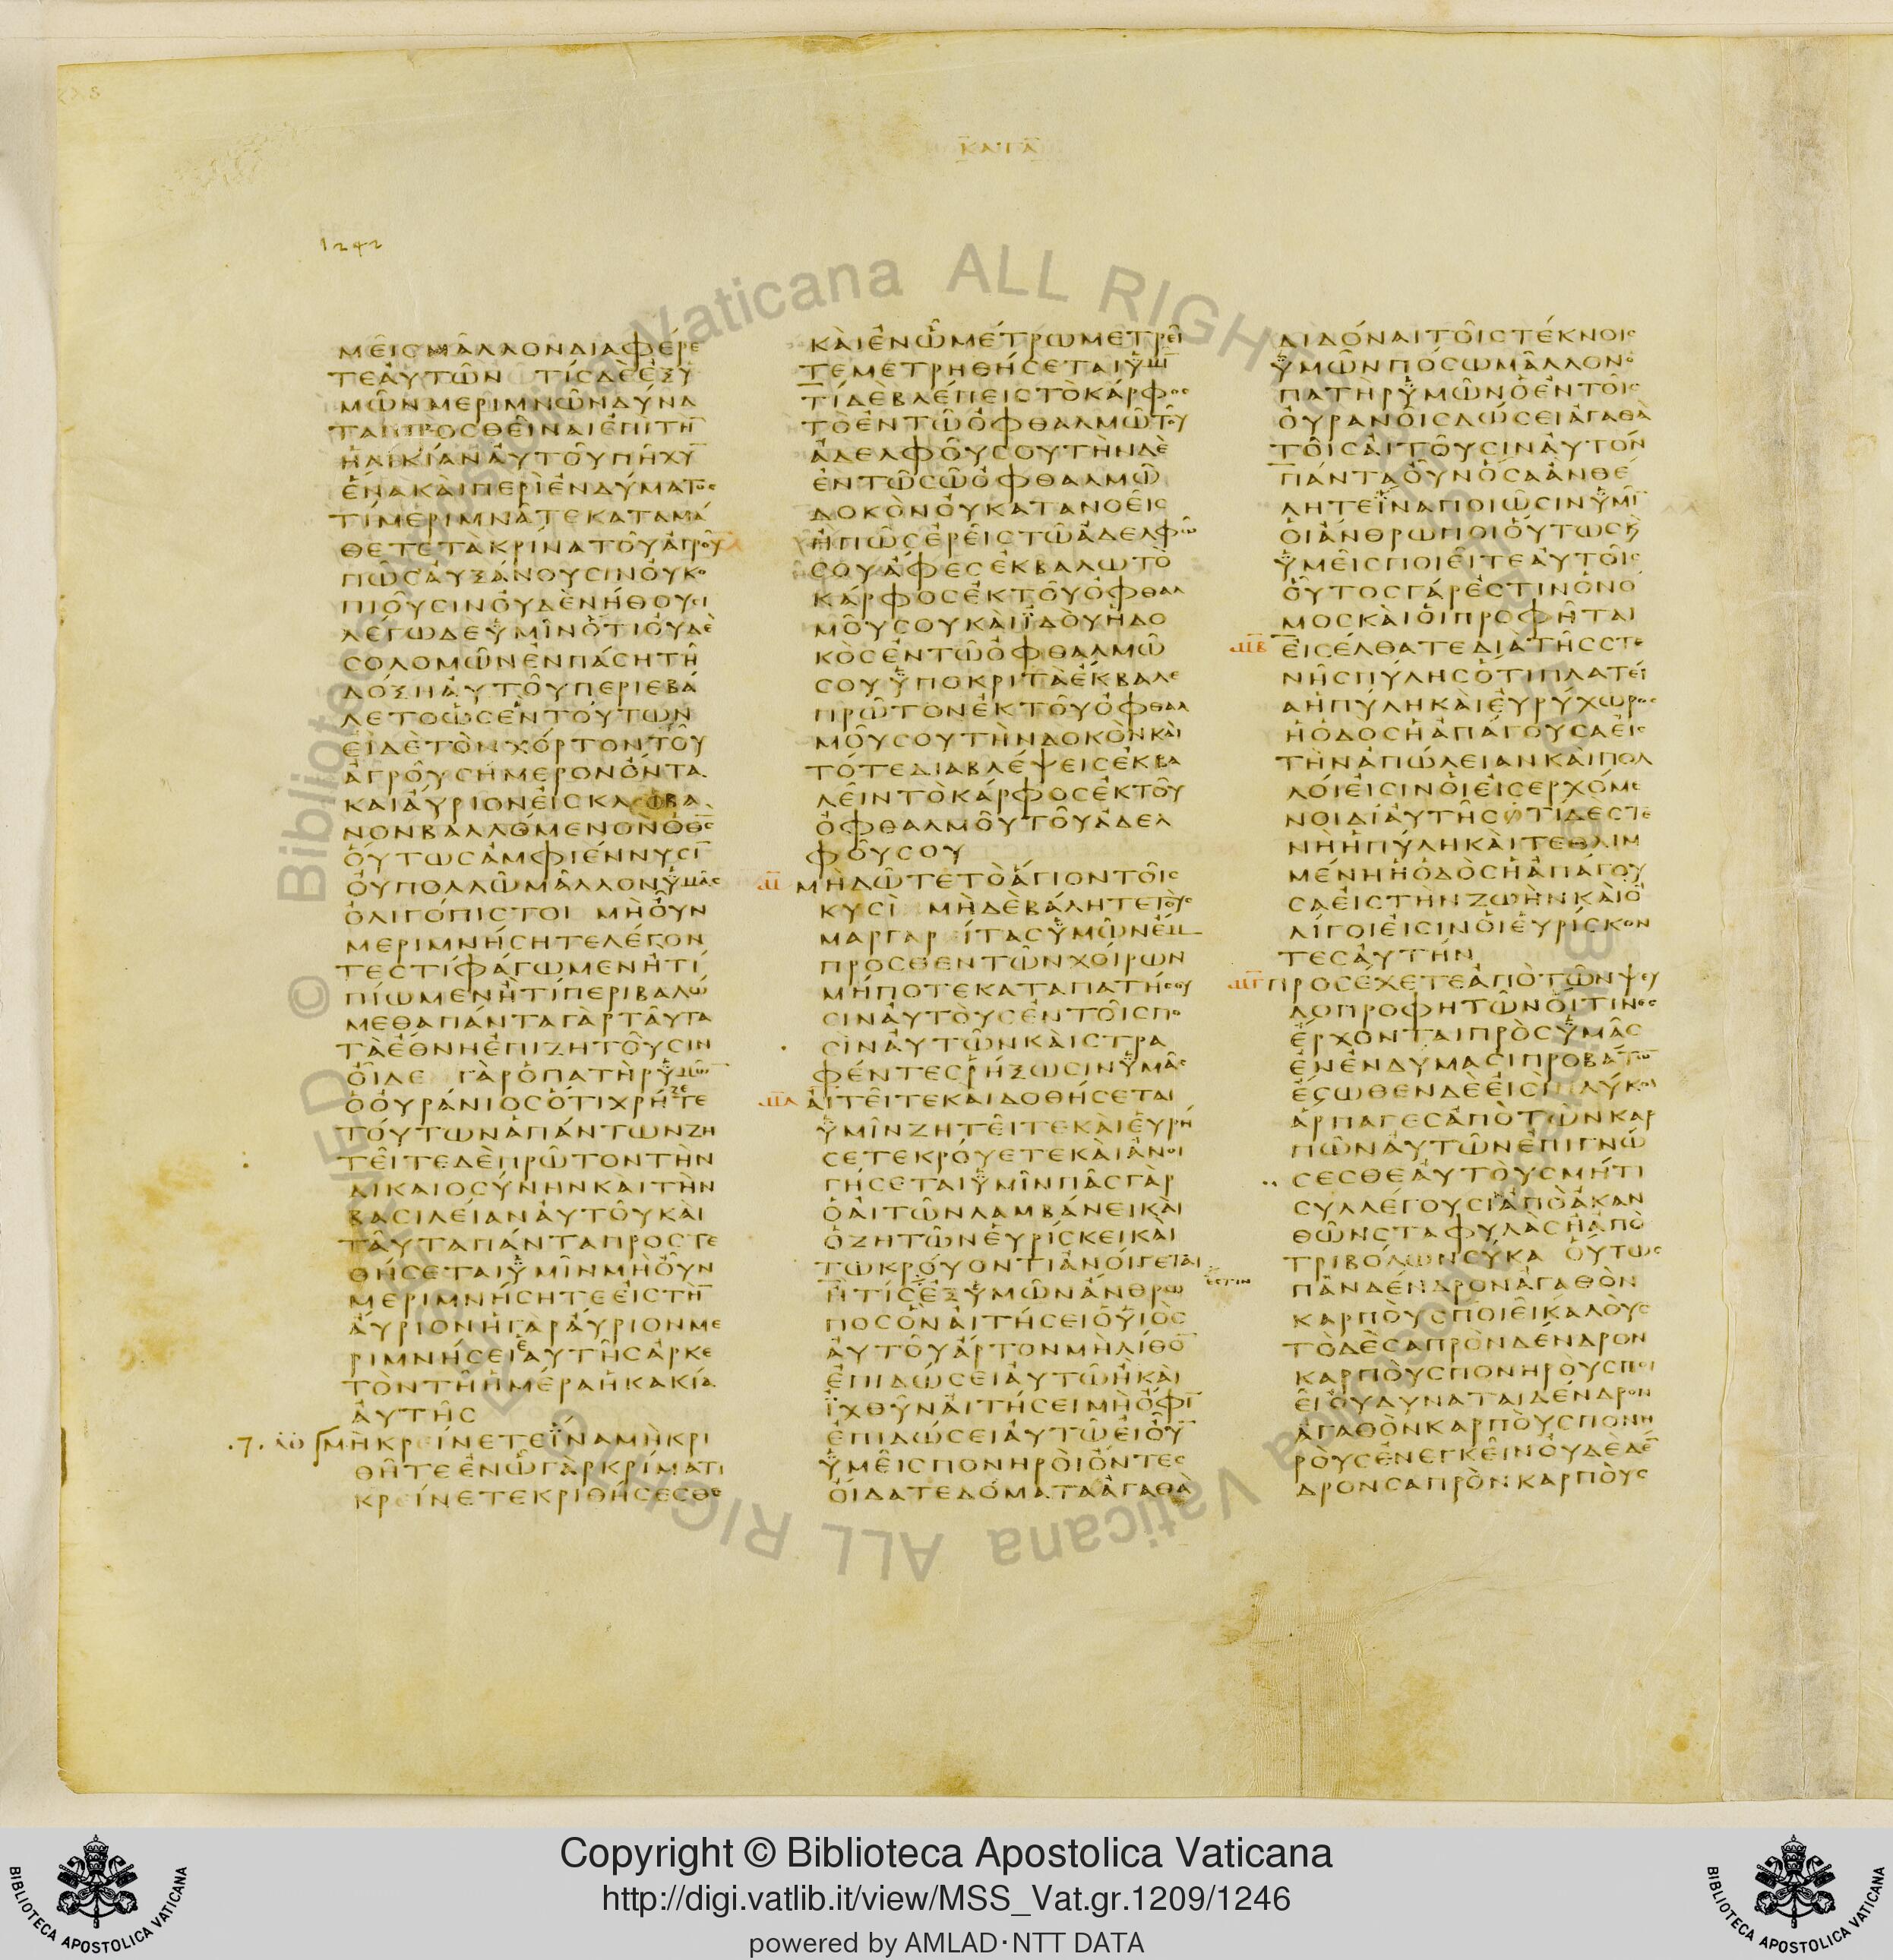 ΚΑΤΑ
1242
ΜΕΙΣ ΜΑΛΛΟΝ ΔΙΑΦΕΡΕ
ΤΕ ΑΥΤΩΝ ΤΙΣ ΔΕ ΕΞ Υ
ΜΩΝ ΜΕΡΙΜΝΩΝ ΔΥΝΑ
ΤΑΙ ΠΡΟΣΘΕΙΝΑΙ ΕΠΙ ΤΗ̅
ΗΛΙΚΙΑΝ ΑΥΤΟΥ ΠΗΧΥ̅
ΕΝΑ ΚΑΙ ΠΕΡΙ ΕΝΔΥΜΑΤΟΣ
ΤΙ ΜΕΡΙΜΝΑΤΕ ΚΑΤΑΜΑ
ΘΕΤΕ ΤΑ ΚΡΙΝΑ ΤΟΥ ΑΓΡΟΥ
ΠΩΣ ΑΥΞΑΝΟΥΣΙΝ ΟΥ ΚΟ
ΠΙΟΥΣΙΝ ΟΥΔΕ ΝΗΘΟΥΣΙ
ΛΕΓΩ ΔΕ ΥΜΙΝ ΟΤΙ ΟΥΔΕ
ΣΟΛΟΜΩΝ ΕΝ ΠΑΣΗ ΤΗ
ΔΟΞΗ ΑΥΤΟΥ ΠΕΡΙΕΒΑ
ΛΕΤΟ ΩΣ ΕΝ ΤΟΥΤΩΝ
ΕΙ ΔΕ ΤΟΝ ΧΟΡΤΟΝ ΤΟΥ
ΑΓΡΟΥ ΣΗΜΕΡΟΝ ΟΝΤΑ
ΚΑΙ ΑΥΡΙΟΝ ΕΙΣ ΚΛΙΒΑ
ΝΟΝ ΒΑΛΛΟΜΕΝΟΝ Ο Θ̅Σ̅
ΟΥΤΩΣ ΑΜΦΙΕΝΝΥΣΙ̅
ΟΥ ΠΟΛΛΩ ΜΑΛΛΟΝ ΥΜΑΣ
ΟΛΙΓΟΠΙΣΤΟΙ ΜΗ ΟΥΝ
ΜΕΡΙΜΝΗΣΗΤΕ ΛΕΓΟΝ
ΤΕΣ ΤΙ ΦΑΓΩΜΕΝ Η ΤΙ
ΠΙΩΜΕΝ Η ΤΙ ΠΕΡΙΒΑΛΩ
ΜΕΘΑ ΠΑΝΤΑ ΓΑΡ ΤΑΥΤΑ
ΤΑ ΕΘΝΗ ΕΠΙΖΗΤΟΥΣΙΝ
ΟΙΔΕ ΓΑΡ Ο ΠΑΤΗΡ ΥΜΩ̅
Ο ΟΥΡΑΝΙΟΣ ΟΤΙ ΧΡΗΖΕΤΕ
ΤΟΥΤΩΝ ΑΠΑΝΤΩΝ ΖΗ
ΤΕΙΤΕ ΔΕ ΠΡΩΤΟΝ ΤΗΝ
ΔΙΚΑΙΟΣΥΝΗΝ ΚΑΙ ΤΗΝ
ΒΑΣΙΛΕΙΑΝ ΑΥΤΟΥ ΚΑΙ
ΤΑΥΤΑ ΠΑΝΤΑ ΠΡΟΣΤΕ
ΘΗΣΕΤΑΙ ΥΜΙΝ ΜΗ ΟΥΝ
ΜΕΡΙΜΝΗΣΗΤΕ ΕΙΣ ΤΗ̅
ΑΥΡΙΟΝ Η ΓΑΡ ΑΥΡΙΟΝ ΜΕ
ΡΙΜΝΗΣΕΙ ΕΑΥΤΗΣ ΑΡΚΕ
ΤΟΝ ΤΗ ΗΜΕΡΑ Η ΚΑΚΙΑ
ΑΥΤΗΣ
ΜΗ ΚΡΕΙΝΕΤΕ ΙΝΑ ΜΗ ΚΡΙ
ΘΗΤΕ ΕΝ Ω ΓΑΡ ΚΡΙΜΑΤΙ
ΚΡΕΙΝΕΤΕ ΚΡΙΘΗΣΕΣΘΕ
ΚΑΙ ΕΝ Ω ΜΕΤΡΩ ΜΕΤΡΕΙ
ΤΕ ΜΕΤΡΗΘΗΣΕΤΑΙ ΥΜΙ̅
ΤΙ ΔΕ ΒΛΕΠΕΙΣ ΤΟ ΚΑΡΦΟΣ
ΤΟ ΕΝ ΤΩ ΟΦΘΑΛΜΩ ΤΟΥ
ΑΔΕΛΦΟΥ ΣΟΥ ΤΗΝ ΔΕ
ΕΝ ΤΩ ΣΩ ΟΦΘΑΛΜΩ
ΔΟΚΟΝ ΟΥ ΚΑΤΑΝΟΕΙΣ
Η ΠΩΣ ΕΡΕΙΣ ΤΩ ΑΔΕΛΦΩ
ΣΟΥ ΑΦΕΣ ΕΚΒΑΛΩ ΤΟ
ΚΑΡΦΟΣ ΕΚ ΤΟΥ ΟΦΘΑΛ
ΜΟΥ ΣΟΥ ΚΑΙ ΙΔΟΥ Η ΔΟ
ΚΟΣ ΕΝ ΤΩ ΟΦΘΑΛΜΩ
ΣΟΥ ΥΠΟΚΡΙΤΑ ΕΚΒΑΛΕ
ΠΡΩΤΟΝ ΕΚ ΤΟΥ ΟΦΘΑΛ
ΜΟΥ ΣΟΥ ΤΗΝ ΔΟΚΟΝ ΚΑΙ
ΤΟΤΕ ΔΙΑΒΛΕΨΕΙΣ ΕΚΒΑ
ΛΕΙΝ ΤΟ ΚΑΡΦΟΣ ΕΚ ΤΟΥ
ΟΦΘΑΛΜΟΥ ΤΟΥ ΑΔΕΛ
ΦΟΥ ΣΟΥ
ΜΗ ΔΩΤΕ ΤΟ ΑΓΙΟΝ ΤΟΙΣ
ΚΥΣΙ ΜΗΔΕ ΒΑΛΗΤΕ ΤΟΥΣ
ΜΑΡΓΑΡΕΙΤΑΣ ΥΜΩΝ ΕΜ
ΠΡΟΣΘΕΝ ΤΩΝ ΧΟΙΡΩΝ
ΜΗΠΟΤΕ ΚΑΤΑΠΑΤΗΣΟΥ
ΣΙΝ ΑΥΤΟΥΣ ΕΝ ΤΟΙΣ ΠΟ
ΣΙΝ ΑΥΤΩΝ ΚΑΙ ΣΤΡΑ
ΦΕΝΤΕΣ ΡΗΞΩΣΙΝ ΥΜΑΣ
ΑΙΤΕΙΤΕ ΚΑΙ ΔΟΘΗΣΕΤΑΙ
ΥΜΙΝ ΖΗΤΕΙΤΕ ΚΑΙ ΕΥΡΗ
ΣΕΤΕ ΚΡΟΥΕΤΕ ΚΑΙ ΑΝΟΙ
ΓΗΣΕΤΑΙ ΥΜΙΝ ΠΑΣ ΓΑΡ
Ο ΑΙΤΩΝ ΛΑΜΒΑΝΕΙ ΚΑΙ
Ο ΖΗΤΩΝ ΕΥΡΙΣΚΕΙ ΚΑΙ
ΤΩ ΚΡΟΥΟΝΤΙ ΑΝΟΙΓΕΤΑΙ
Η ΤΙΣ ΕΞ ΥΜΩΝ ΑΝΘΡΩ
ΕΣΤΙΝ
ΠΟΣ ΟΝ ΑΙΤΗΣΕΙ Ο ΥΙΟΣ
ΑΥΤΟΥ ΑΡΤΟΝ ΜΗ ΛΙΘΟ̅
ΕΠΙΔΩΣΕΙ ΑΥΤΩ Η ΚΑΙ
ΙΧΘΥΝ ΑΙΤΗΣΕΙ ΜΗ ΟΦΙ̅
ΕΠΙΔΩΣΕΙ ΑΥΤΩ ΕΙ ΟΥ̅
ΥΜΕΙΣ ΠΟΝΗΡΟΙ ΟΝΤΕΣ
ΟΙΔΑΤΕ ΔΟΜΑΤΑ ΑΓΑΘΑ
ΔΙΔΟΝΑΙ ΤΟΙΣ ΤΕΚΝΟΙΣ
ΥΜΩΝ ΠΟΣΩ ΜΑΛΛΟΝ Ο
ΠΑΤΗΡ ΥΜΩΝ Ο ΕΝ ΤΟΙΣ
ΟΥΡΑΝΟΙΣ ΔΩΣΕΙ ΑΓΑΘΑ
ΤΟΙΣ ΑΙΤΟΥΣΙΝ ΑΥΤΟΝ
ΠΑΝΤΑ ΟΥΝ ΟΣΑ ΑΝ ΘΕ
ΛΗΤΕ ΙΝΑ ΠΟΙΩΣΙΝ ΥΜΙ̅
ΟΙ ΑΝΘΡΩΠΟΙ ΟΥΤΩΣ Κ
ΥΜΕΙΣ ΠΟΙΕΙΤΕ ΑΥΤΟΙΣ
ΟΥΤΟΣ ΓΑΡ ΕΣΤΙΝ Ο ΝΟ
ΜΟΣ ΚΑΙ ΟΙ ΠΡΟΦΗΤΑΙ
ΕΙΣΕΛΘΑΤΕ ΔΙΑ ΤΗΣ ΣΤΕ
ΝΗΣ ΠΥΛΗΣ ΟΤΙ ΠΛΑΤΕΙ
Α Η ΠΥΛΗ ΚΑΙ ΕΥΡΥΧΩΡΟΣ
Η ΟΔΟΣ Η ΑΠΑΓΟΥΣΑ ΕΙΣ
ΤΗΝ ΑΠΩΛΕΙΑΝ ΚΑΙ ΠΟΛ
ΛΟΙ ΕΙΣΙΝ ΟΙ ΕΙΣΕΡΧΟΜΕ
ΝΟΙ ΔΙ ΑΥΤΗΣ ΟΤΙ ΔΕ ΣΤΕ
ΝΗ Η ΠΥΛΗ ΚΑΙ ΤΕΘΛΙΜ
ΜΕΝΗ Η ΟΔΟΣ Η ΑΠΑΓΟΥ
ΣΑ ΕΙΣ ΤΗΝ ΖΩΗΝ ΚΑΙ Ο
ΛΙΓΟΙ ΕΙΣΙΝ ΟΙ ΕΥΡΙΣΚΟΝ
ΤΕΣ ΑΥΤΗΝ
ΠΡΟΣΕΧΕΤΕ ΑΠΟ ΤΩΝ ΨΕΥ
ΔΟΠΡΟΦΗΤΩΝ ΟΙΤΙΝΕΣ
ΕΡΧΟΝΤΑΙ ΠΡΟΣ ΥΜΑΣ
ΕΝ ΕΝΔΥΜΑΣΙ ΠΡΟΒΑΤΩ̅
ΕΣΩΘΕΝ ΔΕ ΕΙΣΙ ΛΥΚΟΙ
ΑΡΠΑΓΕΣ ΑΠΟ ΤΩΝ ΚΑΡ
ΠΩΝ ΑΥΤΩΝ ΕΠΙΓΝΩ
ΣΕΣΘΕ ΑΥΤΟΥΣ ΜΗΤΙ
ΣΥΛΛΕΓΟΥΣΙΝ ΑΠΟ ΑΚΑΝ
ΘΩΝ ΣΤΑΦΥΛΑΣ Η ΑΠΟ
ΤΡΙΒΟΛΩΝ ΣΥΚΑ ΟΥΤΩΣ
ΠΑΝ ΔΕΝΔΡΟΝ ΑΓΑΘΟΝ
ΚΑΡΠΟΥΣ ΠΟΙΕΙ ΚΑΛΟΥΣ
ΤΟ ΔΕ ΣΑΠΡΟΝ ΔΕΝΔΡΟΝ
ΚΑΡΠΟΥΣ ΠΟΝΗΡΟΥΣ ΠΟΙ
ΕΙ ΟΥ ΔΥΝΑΤΑΙ ΔΕΝΔΡΟΝ
ΑΓΑΘΟΝ ΚΑΡΠΟΥΣ ΠΟΝΗ
ΡΟΥΣ ΕΝΕΓΚΕΙΝ ΟΥΔΕ ΔΕ̅
ΔΡΟΝ ΣΑΠΡΟΝ ΚΑΡΠΟΥΣ
Copyright © Biblioteca Apostolica Vaticana
http://digi.vatlib.it/view/MSS_Vat.gr.1209/1246
powered by AMLAD·NTT DATA
BIBLIOTECA APOSTOLICA VATICANA
BIBLIOTECA APOSTOLICA VATICANA